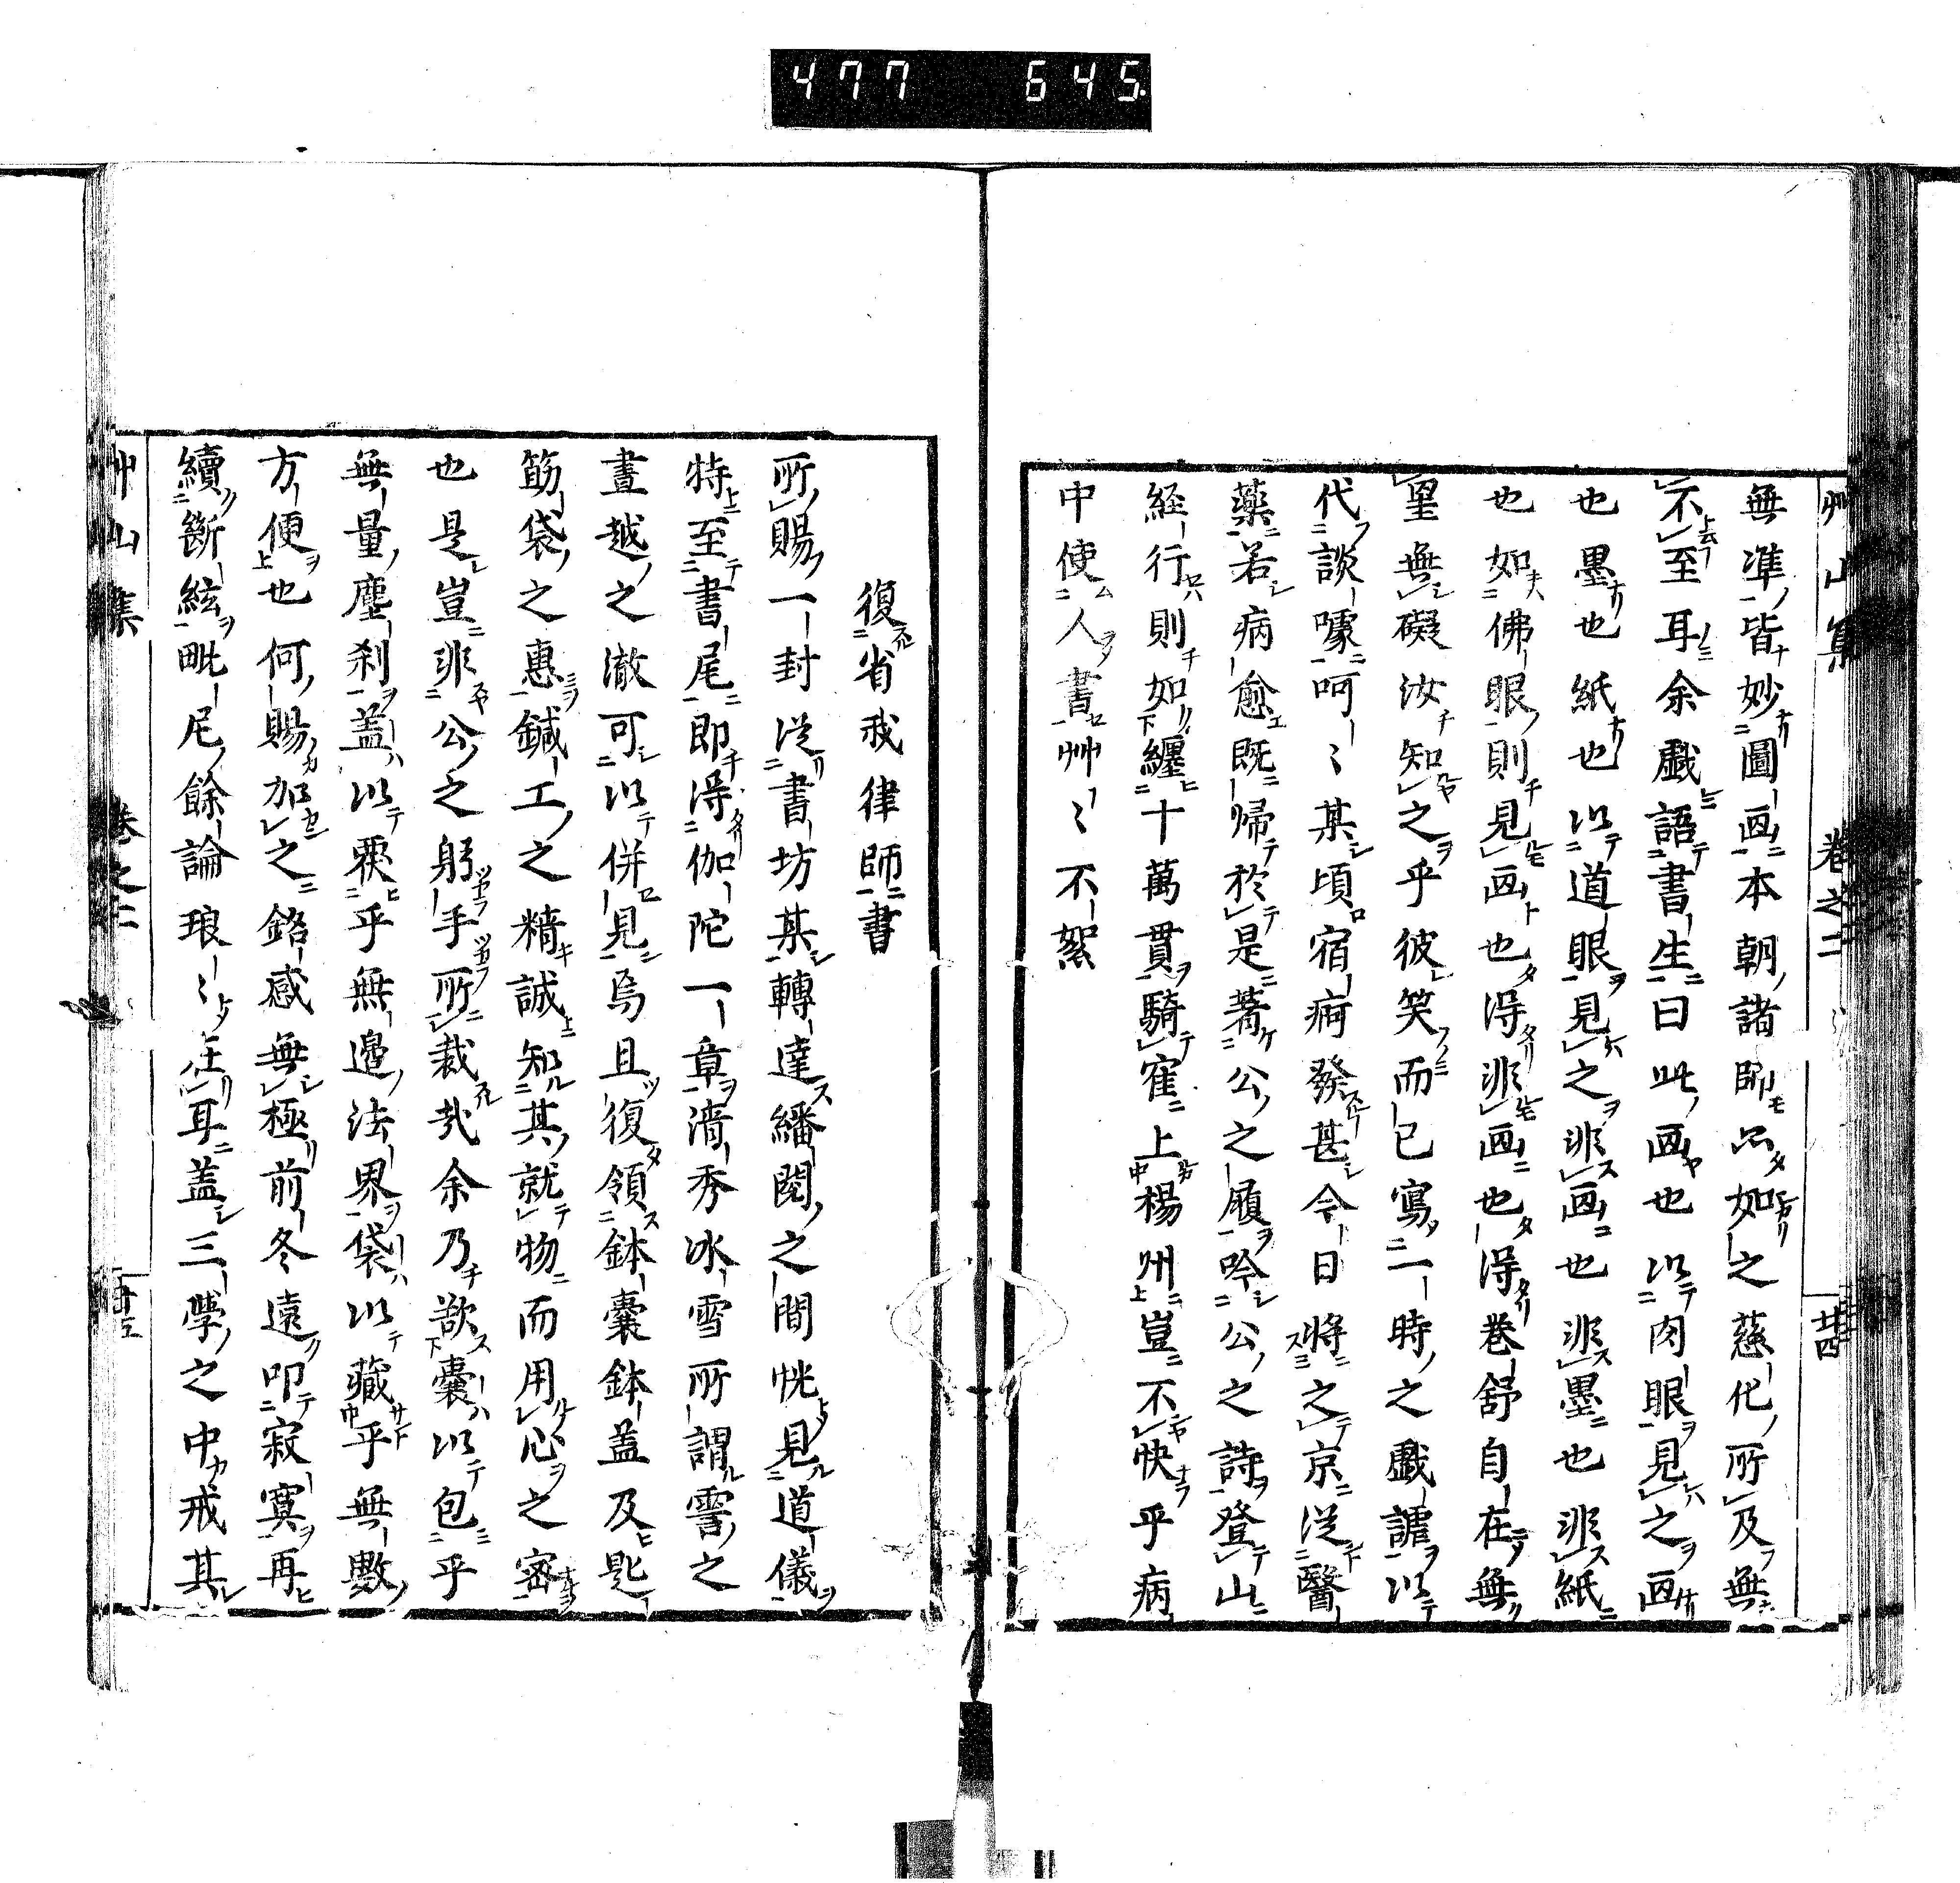 477 645
艸山集 卷之二 廿四
無準皆妙圖画本朝諸師品如之慈化所及無
不至耳余戲語書生曰此画也以肉眼見之画
也墨也紙也以道眼見之非画也非墨也非紙
也如佛眼則見画也得非画也得卷舒自在無
罣無礙汝知之乎彼笑而已寫一時之戲謔以
代談噱呵〻某頃宿痾發甚今日將之京從醫
藥若病愈既歸於是著公之履吟公之詩登山
経行則如纏十萬貫騎寉上楊州豈不快乎病
中使人書艸〻不絮
復省我律師書
所賜一封従書坊某轉達繙閲之間恍見道儀
特至書尾即得伽陀一章清秀冰雪所謂霅之
晝越之澈可以併見烏且復領鉢嚢鉢盖及匙
筯袋之惠鍼工之精誠知其就物而用心之密
也是豈非公之躬手所裁哉余乃欲嚢以包乎
無量塵刹盖以覆乎無邊法界袋以藏乎無數
方便也何賜加之銘感無極前冬遠叩寂寞再
續斷絃毗尼餘論琅〻在耳盖三學之中戒其
艸山集 卷之二 廿五